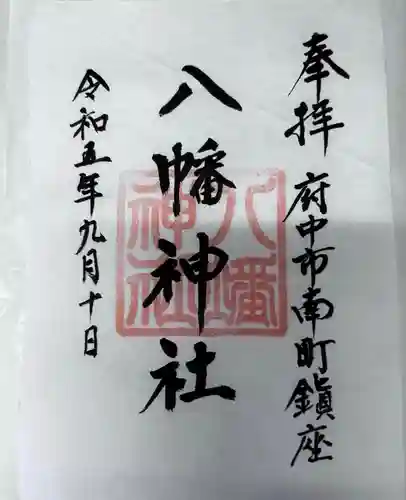 奉拝
府中市南町鎮座
八幡神社
八幡
神社
令和五年九月十日